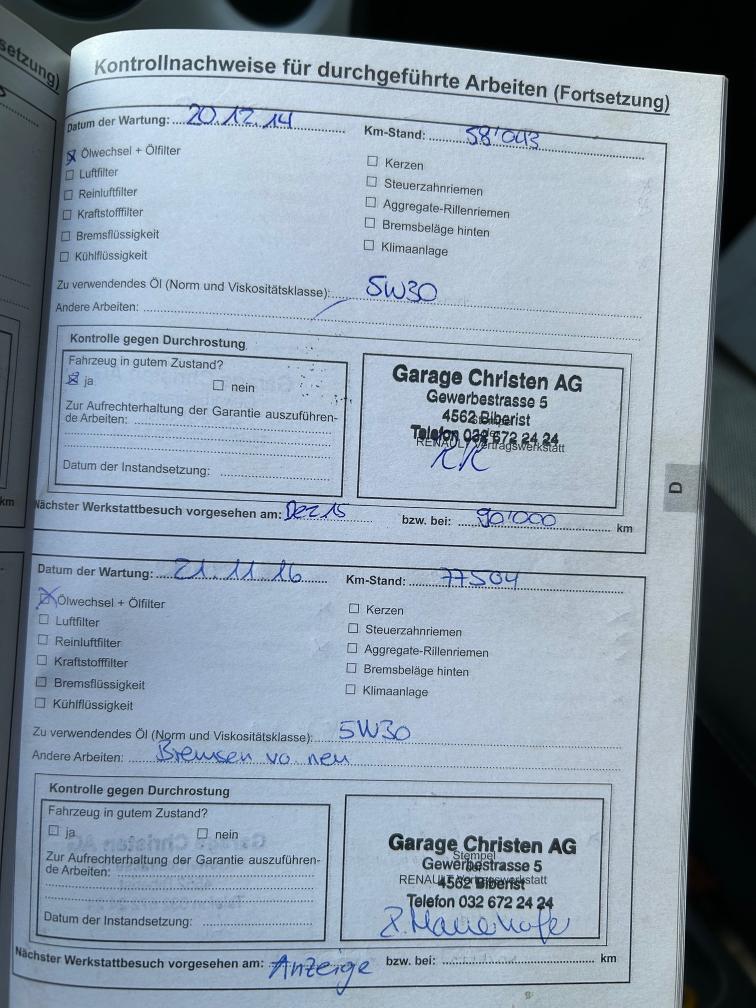 setzung)
Kontrollnachweise für durchgeführte Arbeiten (Fortsetzung)
Datum der Wartung: 20.12.14 Km-Stand: 58'043
Ölwechsel + Ölfilter Kerzen
Luftfilter Steuerzahnriemen
Reinluftfilter Aggregate-Rillenriemen
Kraftstofffilter Bremsbeläge hinten
Bremsflüssigkeit Klimaanlage
Kühlflüssigkeit
Zu verwendendes Öl (Norm und Viskositätsklasse): 5W30
Andere Arbeiten:
Kontrolle gegen Durchrostung
Fahrzeug in gutem Zustand?
ja nein
Zur Aufrechterhaltung der Garantie auszuführen-
de Arbeiten:
Datum der Instandsetzung:
Garage Christen AG
Gewerbestrasse 5
4562 Biberist
Telefon 032 672 24 24
RENAULT Vertragswerkstatt
D
km
Nächster Werkstattbesuch vorgesehen am: Dez 15 bzw. bei: 90'000 km
Datum der Wartung: 21.11.16 Km-Stand: 77504
Ölwechsel + Ölfilter Kerzen
Luftfilter Steuerzahnriemen
Reinluftfilter Aggregate-Rillenriemen
Kraftstofffilter Bremsbeläge hinten
Bremsflüssigkeit Klimaanlage
Kühlflüssigkeit
Zu verwendendes Öl (Norm und Viskositätsklasse): 5W30
Andere Arbeiten: Bremsen vo neu
Kontrolle gegen Durchrostung
Fahrzeug in gutem Zustand?
ja nein
Zur Aufrechterhaltung der Garantie auszuführen-
de Arbeiten:
Datum der Instandsetzung:
Garage Christen AG
Stempel
Gewerbestrasse 5
RENAULT Vertragswerkstatt
4562 Biberist
Telefon 032 672 24 24
km
Nächster Werkstattbesuch vorgesehen am: Anzeige bzw. bei: km